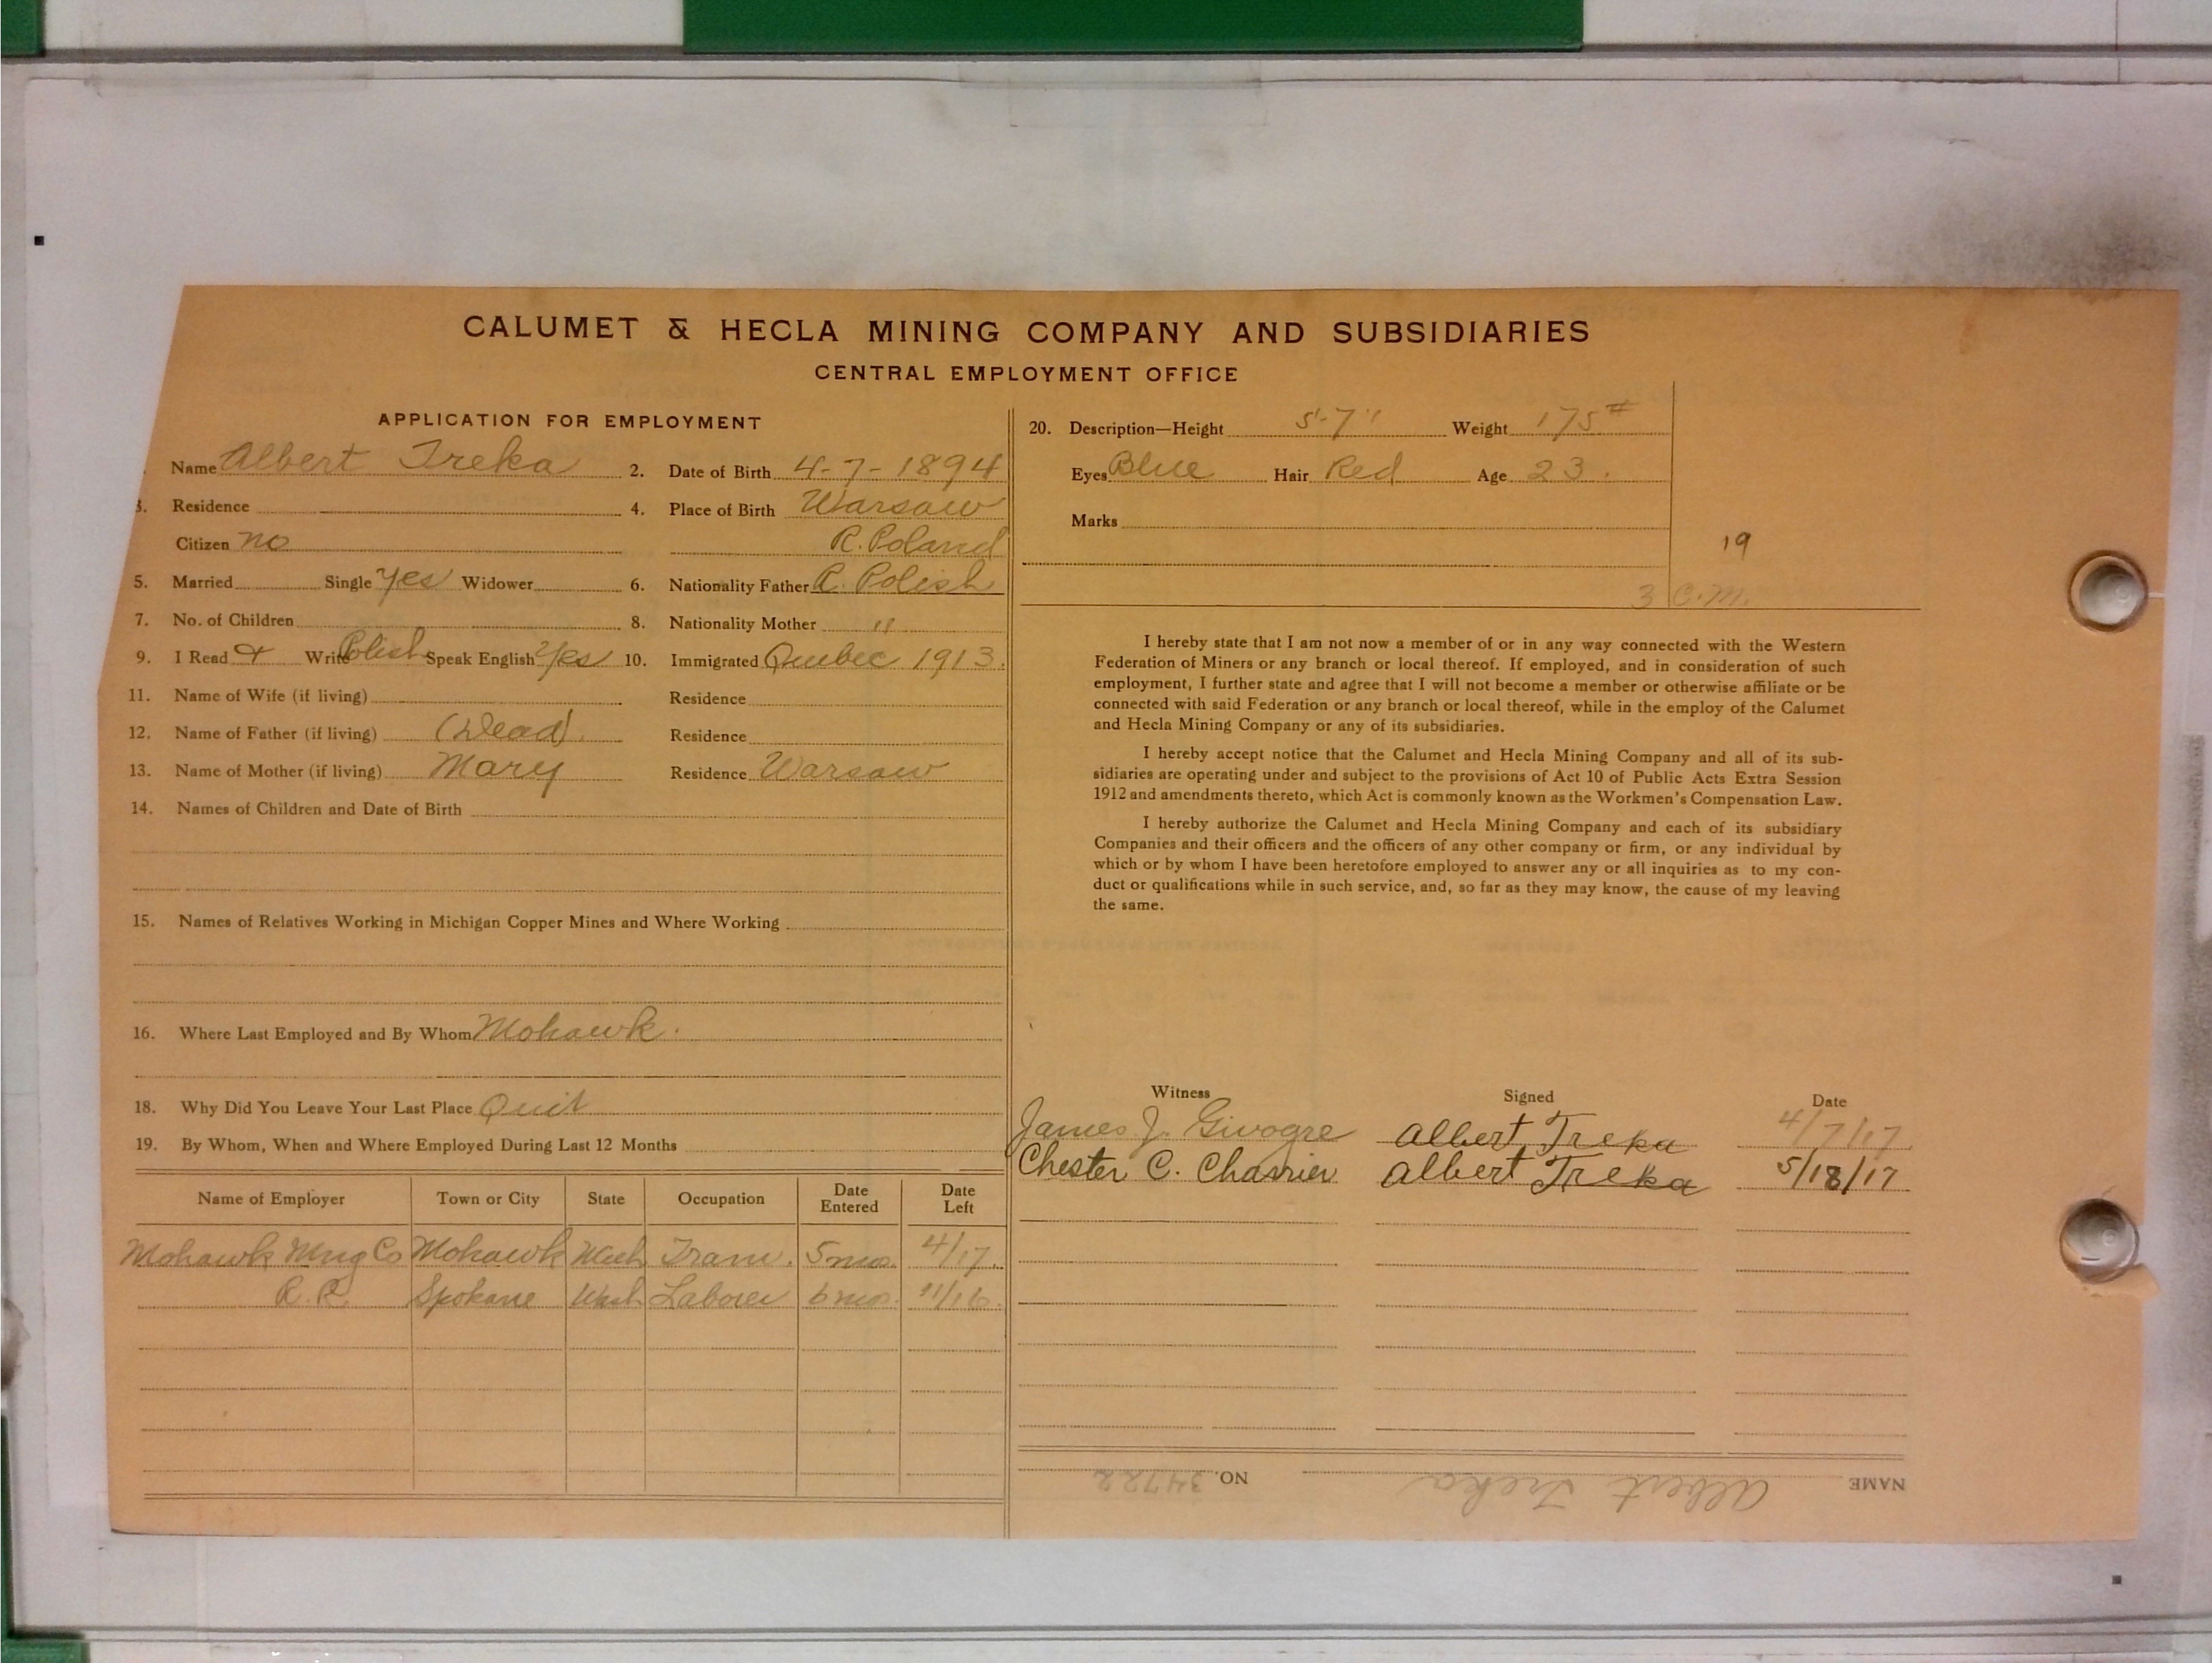 CALUMET & HECLA MINING COMPANY AND SUBSIDIARIES
CENTRAL EMPLOYMENT OFFICE
APPLICATION FOR EMPLOYMENT
Name Albert Treka 2. Date of Birth 4-7-1894
3. Residence 4. Place of Birth Warsaw
Citizen no R. Poland
5. Married Single Yes Widower 6. Nationality Father R. Polish
7. No. of Children 8. Nationality Mother "
9. I Read & Write Polish Speak English Yes 10. Immigrated Quebec 1913.
11. Name of Wife (if living) Residence
12. Name of Father (if living) (Dead). Residence
13. Name of Mother (if living) Mary Residence Warsaw
14. Names of Children and Date of Birth
15. Names of Relatives Working in Michigan Copper Mines and Where Working
16. Where Last Employed and By Whom Mohawk.
18. Why Did You Leave Your Last Place Quit
19. By Whom, When and Where Employed During Last 12 Months
Name of Employer Town or City State Occupation Date Entered Date Left
Mohawk Mng Co Mohawk Mich Tram. 5 mos. 4/17.
R.R. Spokane Wash Laborer 6 mos. 11/16.
20. Description—Height 5'-7" Weight 175#
Eyes Blue Hair Red Age 23.
Marks
19
3 C.M.
I hereby state that I am not now a member of or in any way connected with the Western
Federation of Miners or any branch or local thereof. If employed, and in consideration of such
employment, I further state and agree that I will not become a member or otherwise affiliate or be
connected with said Federation or any branch or local thereof, while in the employ of the Calumet
and Hecla Mining Company or any of its subsidiaries.
I hereby accept notice that the Calumet and Hecla Mining Company and all of its sub-
sidiaries are operating under and subject to the provisions of Act 10 of Public Acts Extra Session
1912 and amendments thereto, which Act is commonly known as the Workmen's Compensation Law.
I hereby authorize the Calumet and Hecla Mining Company and each of its subsidiary
Companies and their officers and the officers of any other company or firm, or any individual by
which or by whom I have been heretofore employed to answer any or all inquiries as to my con-
duct or qualifications while in such service, and, so far as they may know, the cause of my leaving
the same.
Witness Signed Date
James J. Givogre Albert Treka 4/7/17.
Chester C. Charrier Albert Treka 5/18/17
NAME Albert Treka NO. 34722